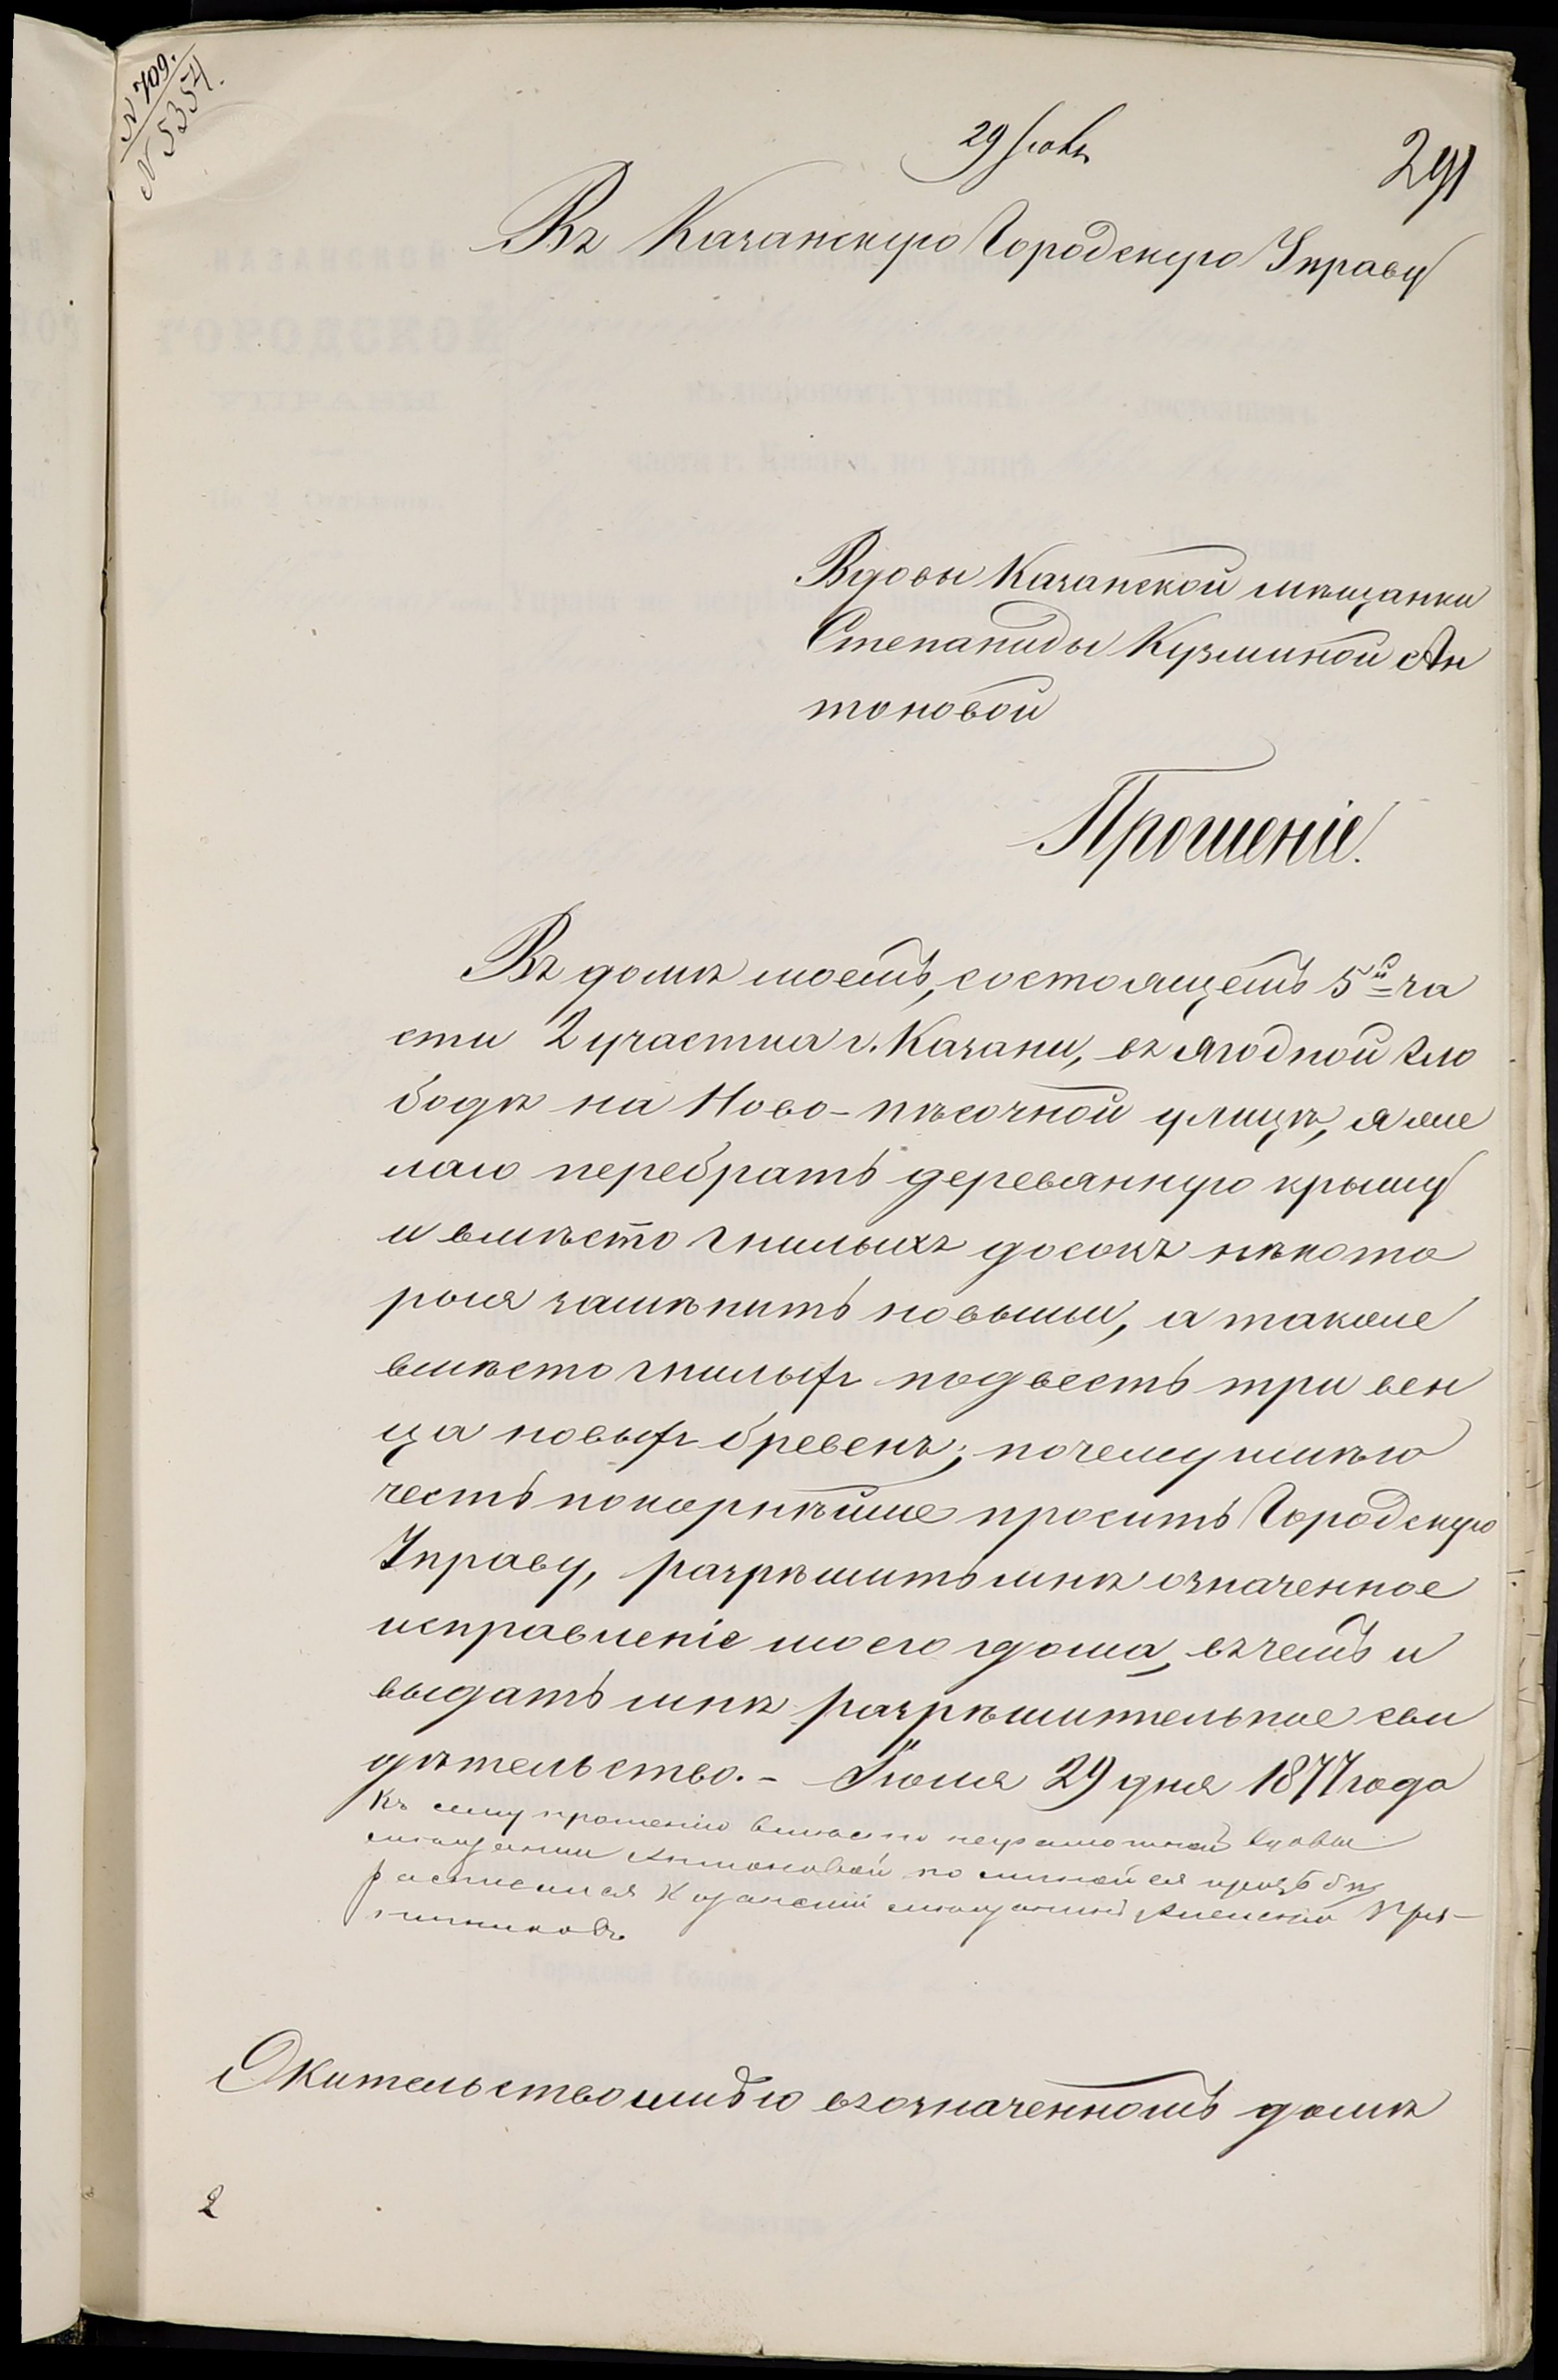 N 709.
N 5354.
29 Іюля
291
Въ Казанскую Городскую Управу
Вдовы Казанской мѣщанки
Степаниды Кузминой Ан
тоновой
Прошеніе.
Въ домѣ моемъ, состоящемъ 5й ча
сти 2 участка г. Казани, въ Ягодной Сло
бодѣ на Ново-пѣсочной улицѣ, я же
лаю перебрать деревянную крышу
и вмѣсто гнилыхъ досокъ нѣкото
рыя замѣнить новыми, а также
вмѣсто гнилыхъ подвесть три вен
ца новыхъ бревенъ; почему имѣю
честь покорнѣйше просить Городскую
Управу, разрѣшить мнѣ означенное
исправленіе моего дома, въ чемъ и
выдать мнѣ разрѣшительное сви
дѣтельство. - Іюля 29 дня 1877 года
Къ сему прошенію вмѣсто неграмотной вдовы
мѣщанки Антоновой по личной ея прозьбѣ
росписался Казанскій мѣщанинъ Алексѣй Пря-
нишниковъ
Жительство имѣю въ означенномъ домѣ
2